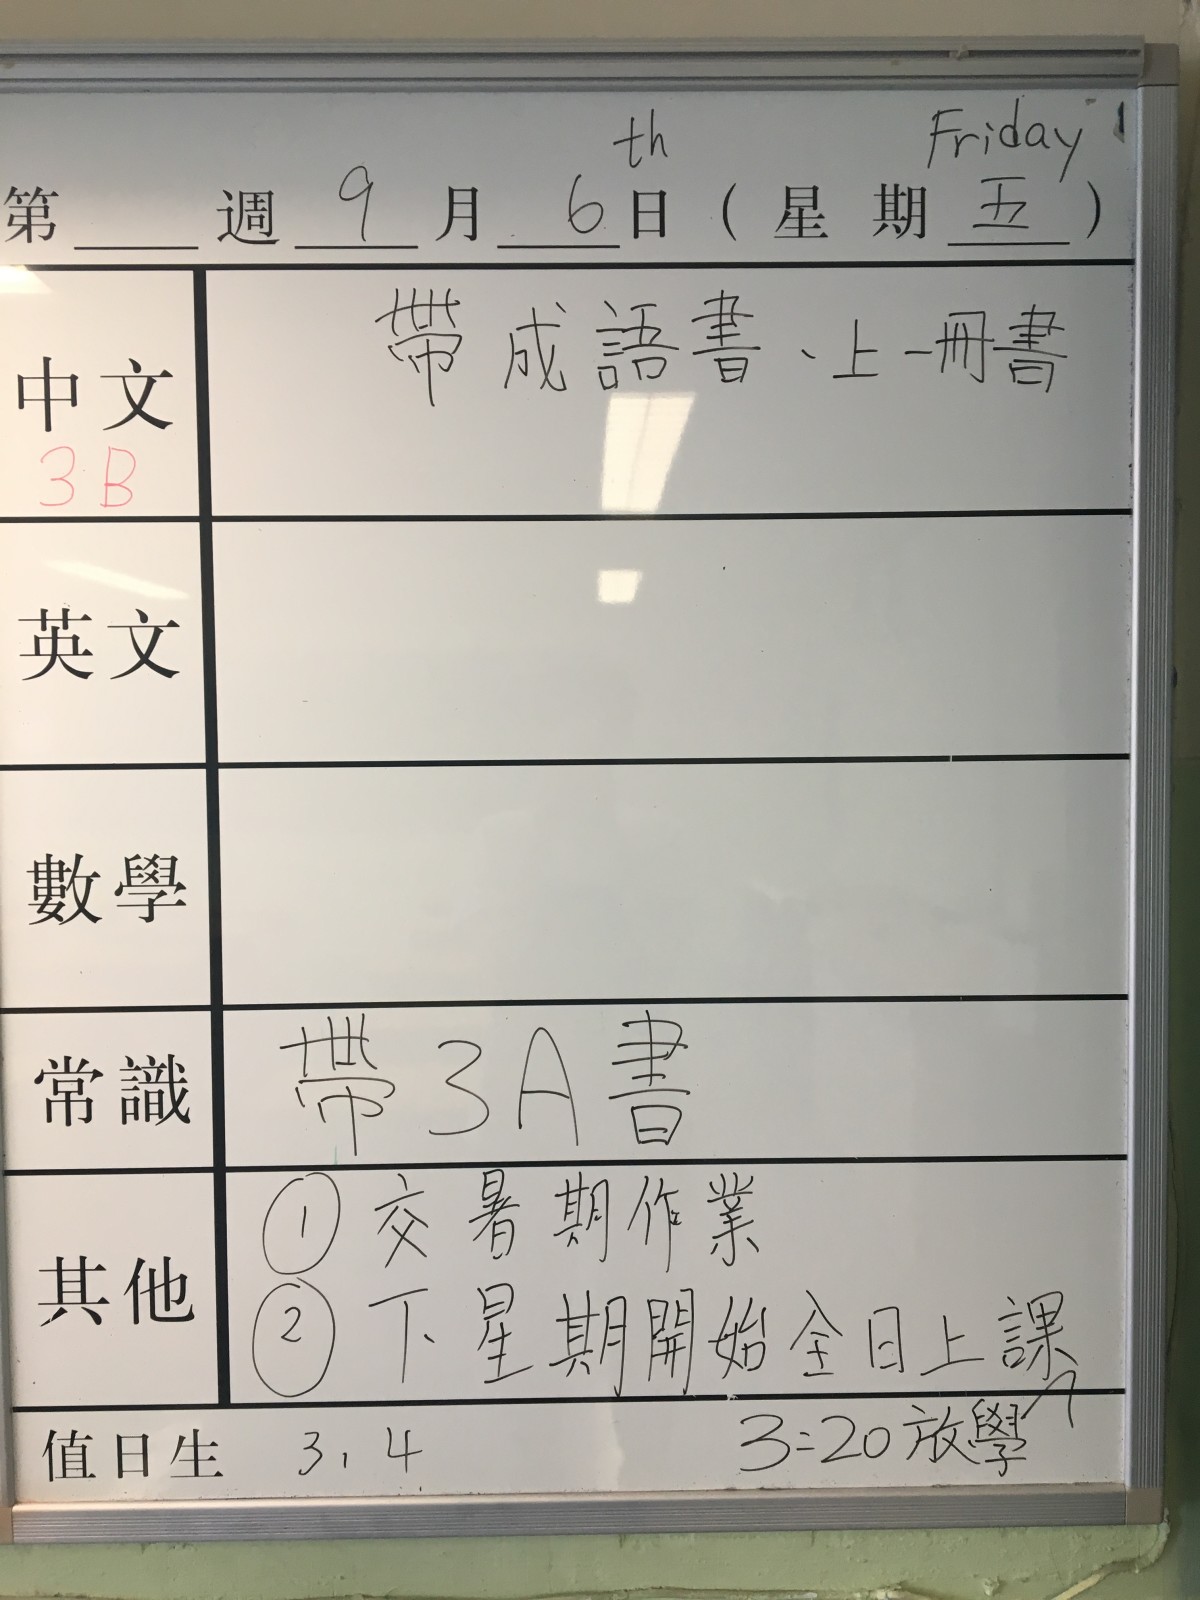 th Friday
第 週 9 月 6 日 ( 星 期 五 )
中文 帶成語書、上一冊書
3B
英文
數學
常識 帶3A書
其他 ① 交暑期作業
② 下星期開始全日上課
3:20放學
值日生 3, 4